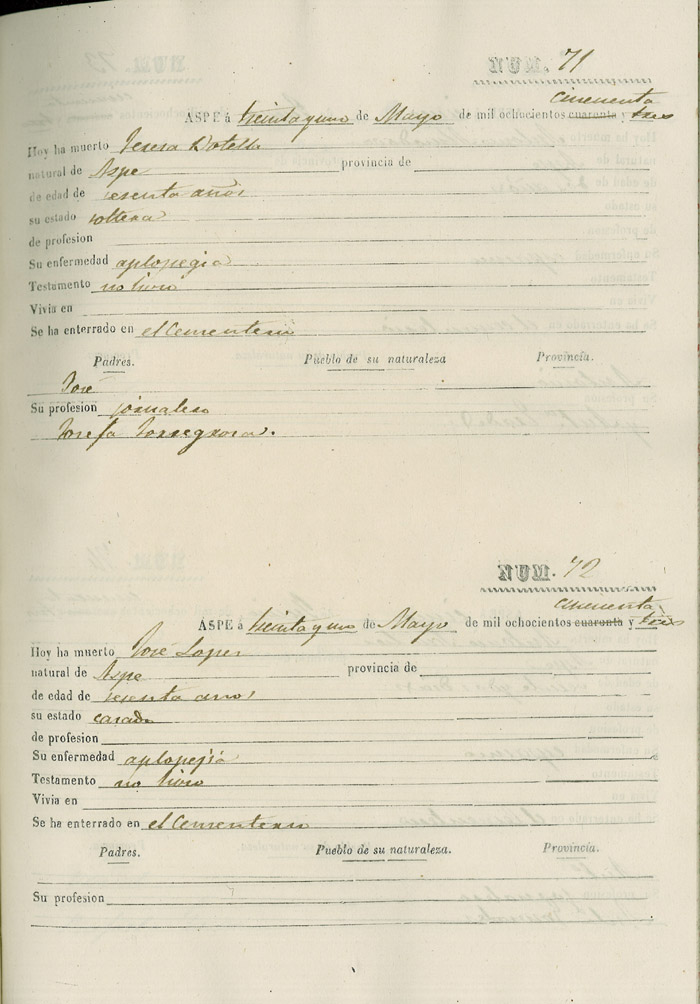 NUM. 71
cincuenta
ASPE á treinta y uno de Mayo de mil ochocientos cuarenta y tres
Hoy ha muerto Teresa Botella
natural de Aspe provincia de
de edad de sesenta años
su estado soltera
de profesion
Su enfermedad aplopegia
Testamento no hizo
Vivia en
Se ha enterrado en el Cementerio
Padres. Pueblo de su naturaleza Provincia.
José
Su profesion jornalero
Josefa Torregrosa.
NUM. 72
cincuenta
ASPE á treinta y uno de Mayo de mil ochocientos cuarenta y tres
Hoy ha muerto José Lopez
natural de Aspe provincia de
de edad de sesenta años
su estado casado
de profesion
Su enfermedad aplopejia
Testamento no hizo
Vivia en
Se ha enterrado en el Cementerio
Padres. Pueblo de su naturaleza. Provincia.
Su profesion